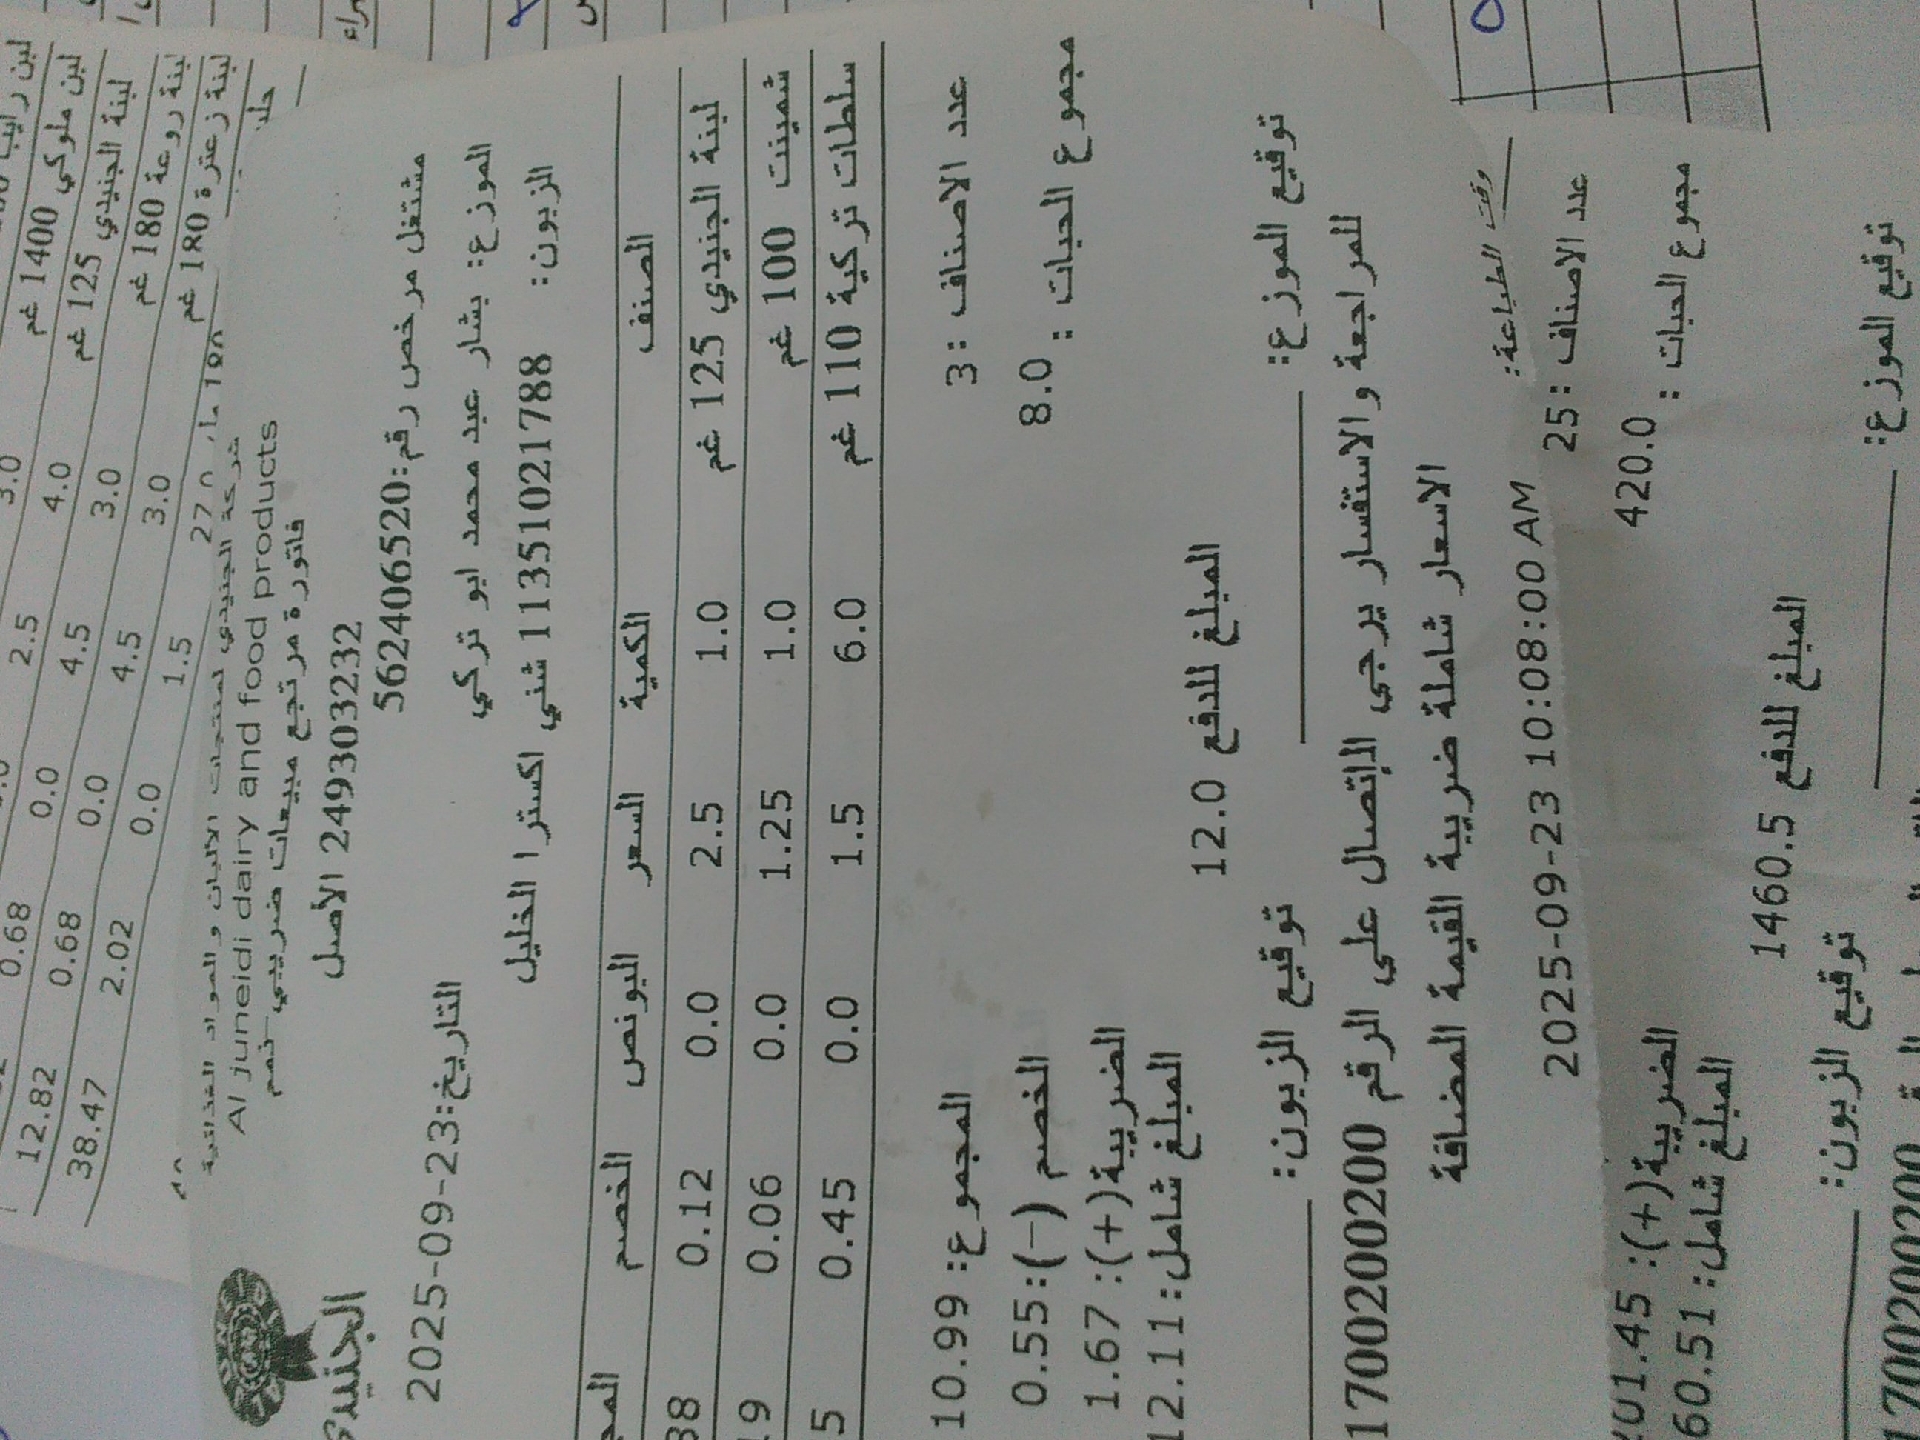 لبن رايب
3.0 2.5
لبن ملوكي 1400 غم 4.0 4.5 0.0 0.68
لبنة الجنيدي 125 غم 3.0 4.5 0.0 0.68 12.82
لبنة روعة 180 غم 3.0 1.5 0.0 2.02 38.47
لبنة زعترة 180 غم
الجنيدي
شركة الجنيدي لمنتجات الالبان والمواد الغذائية
Al juneidi dairy and food products
فاتورة مرتجع مبيعات ضريبي-نهم
249303232 الأصل
مشتغل مرخص رقم:562406520
التاريخ:2025-09-23
الموزع: بشار عبد محمد ابو تركي
الزبون: 11351021788 شني اكسترا الخليل
الصنف الكمية السعر البونص الخصم المج
لبنة الجنيدي 125 غم 1.0 2.5 0.0 0.12 38
شمينت 100 غم 1.0 1.25 0.0 0.06 19
سلطات تركية 110 غم 6.0 1.5 0.0 0.45 5
عدد الاصناف :3
المجموع: 10.99
مجموع الحبات : 8.0
الخصم (-):0.55
الضريبة(+): 1.67
المبلغ شامل:12.11
المبلغ للدفع 12.0
توقيع الموزع:
توقيع الزبون:
للمراجعة والاستفسار يرجى الإتصال على الرقم 1700200200
الاسعار شاملة ضريبة القيمة المضافة
وقت الطباعة: 2025-09-23 10:08:00 AM
عدد الاصناف :25
مجموع الحبات : 420.0
الضريبة(+): 201.45
المبلغ شامل: 60.51
المبلغ للدفع 1460.5
توقيع الموزع:
توقيع الزبون:
1700200200